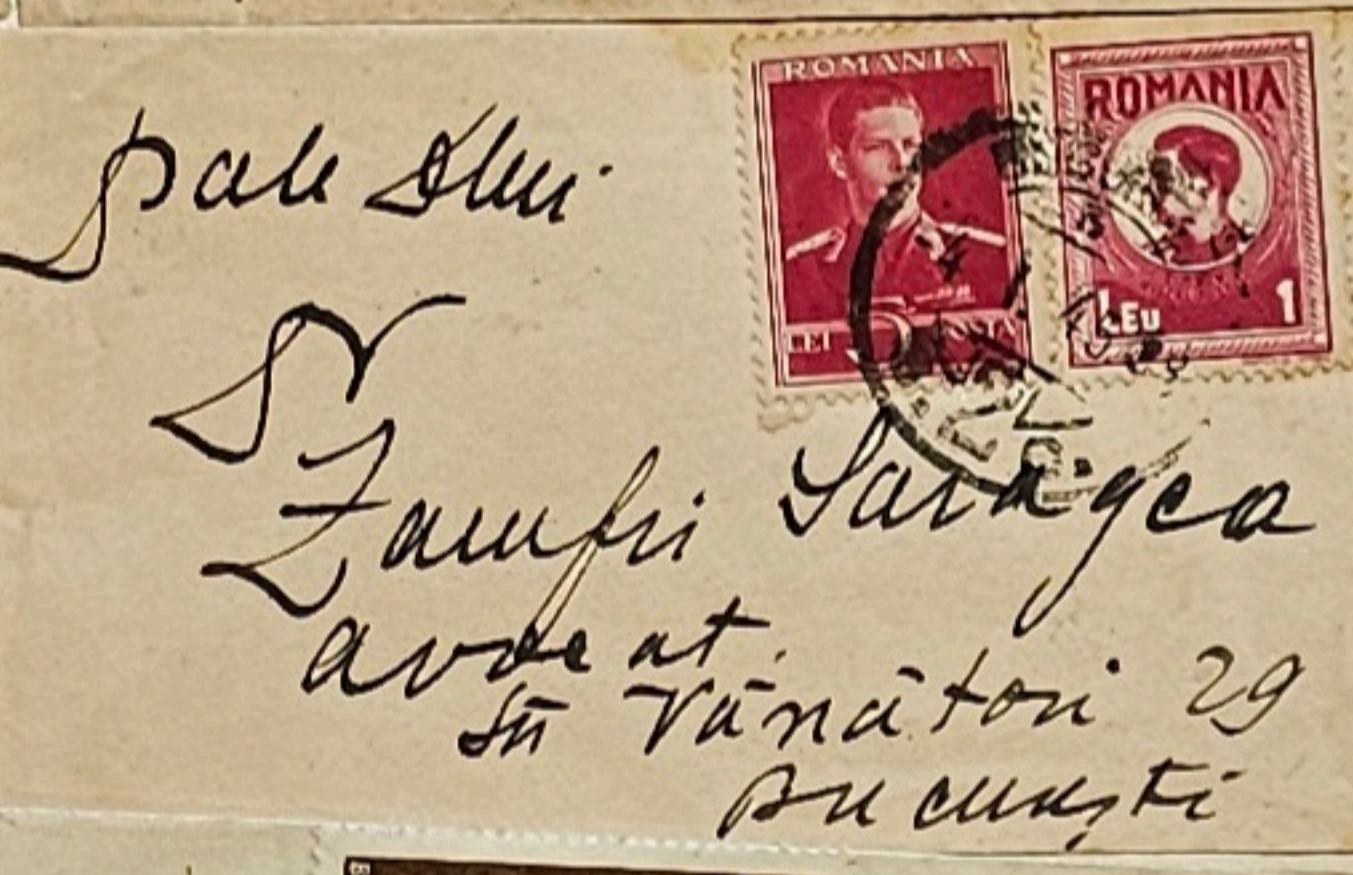 ROMANIA
LEI 5 POSTA
ROMANIA
LEU 1
Dale Dlui
Dr
Zamfir Saragea
avocat
Str Vânători 29
București